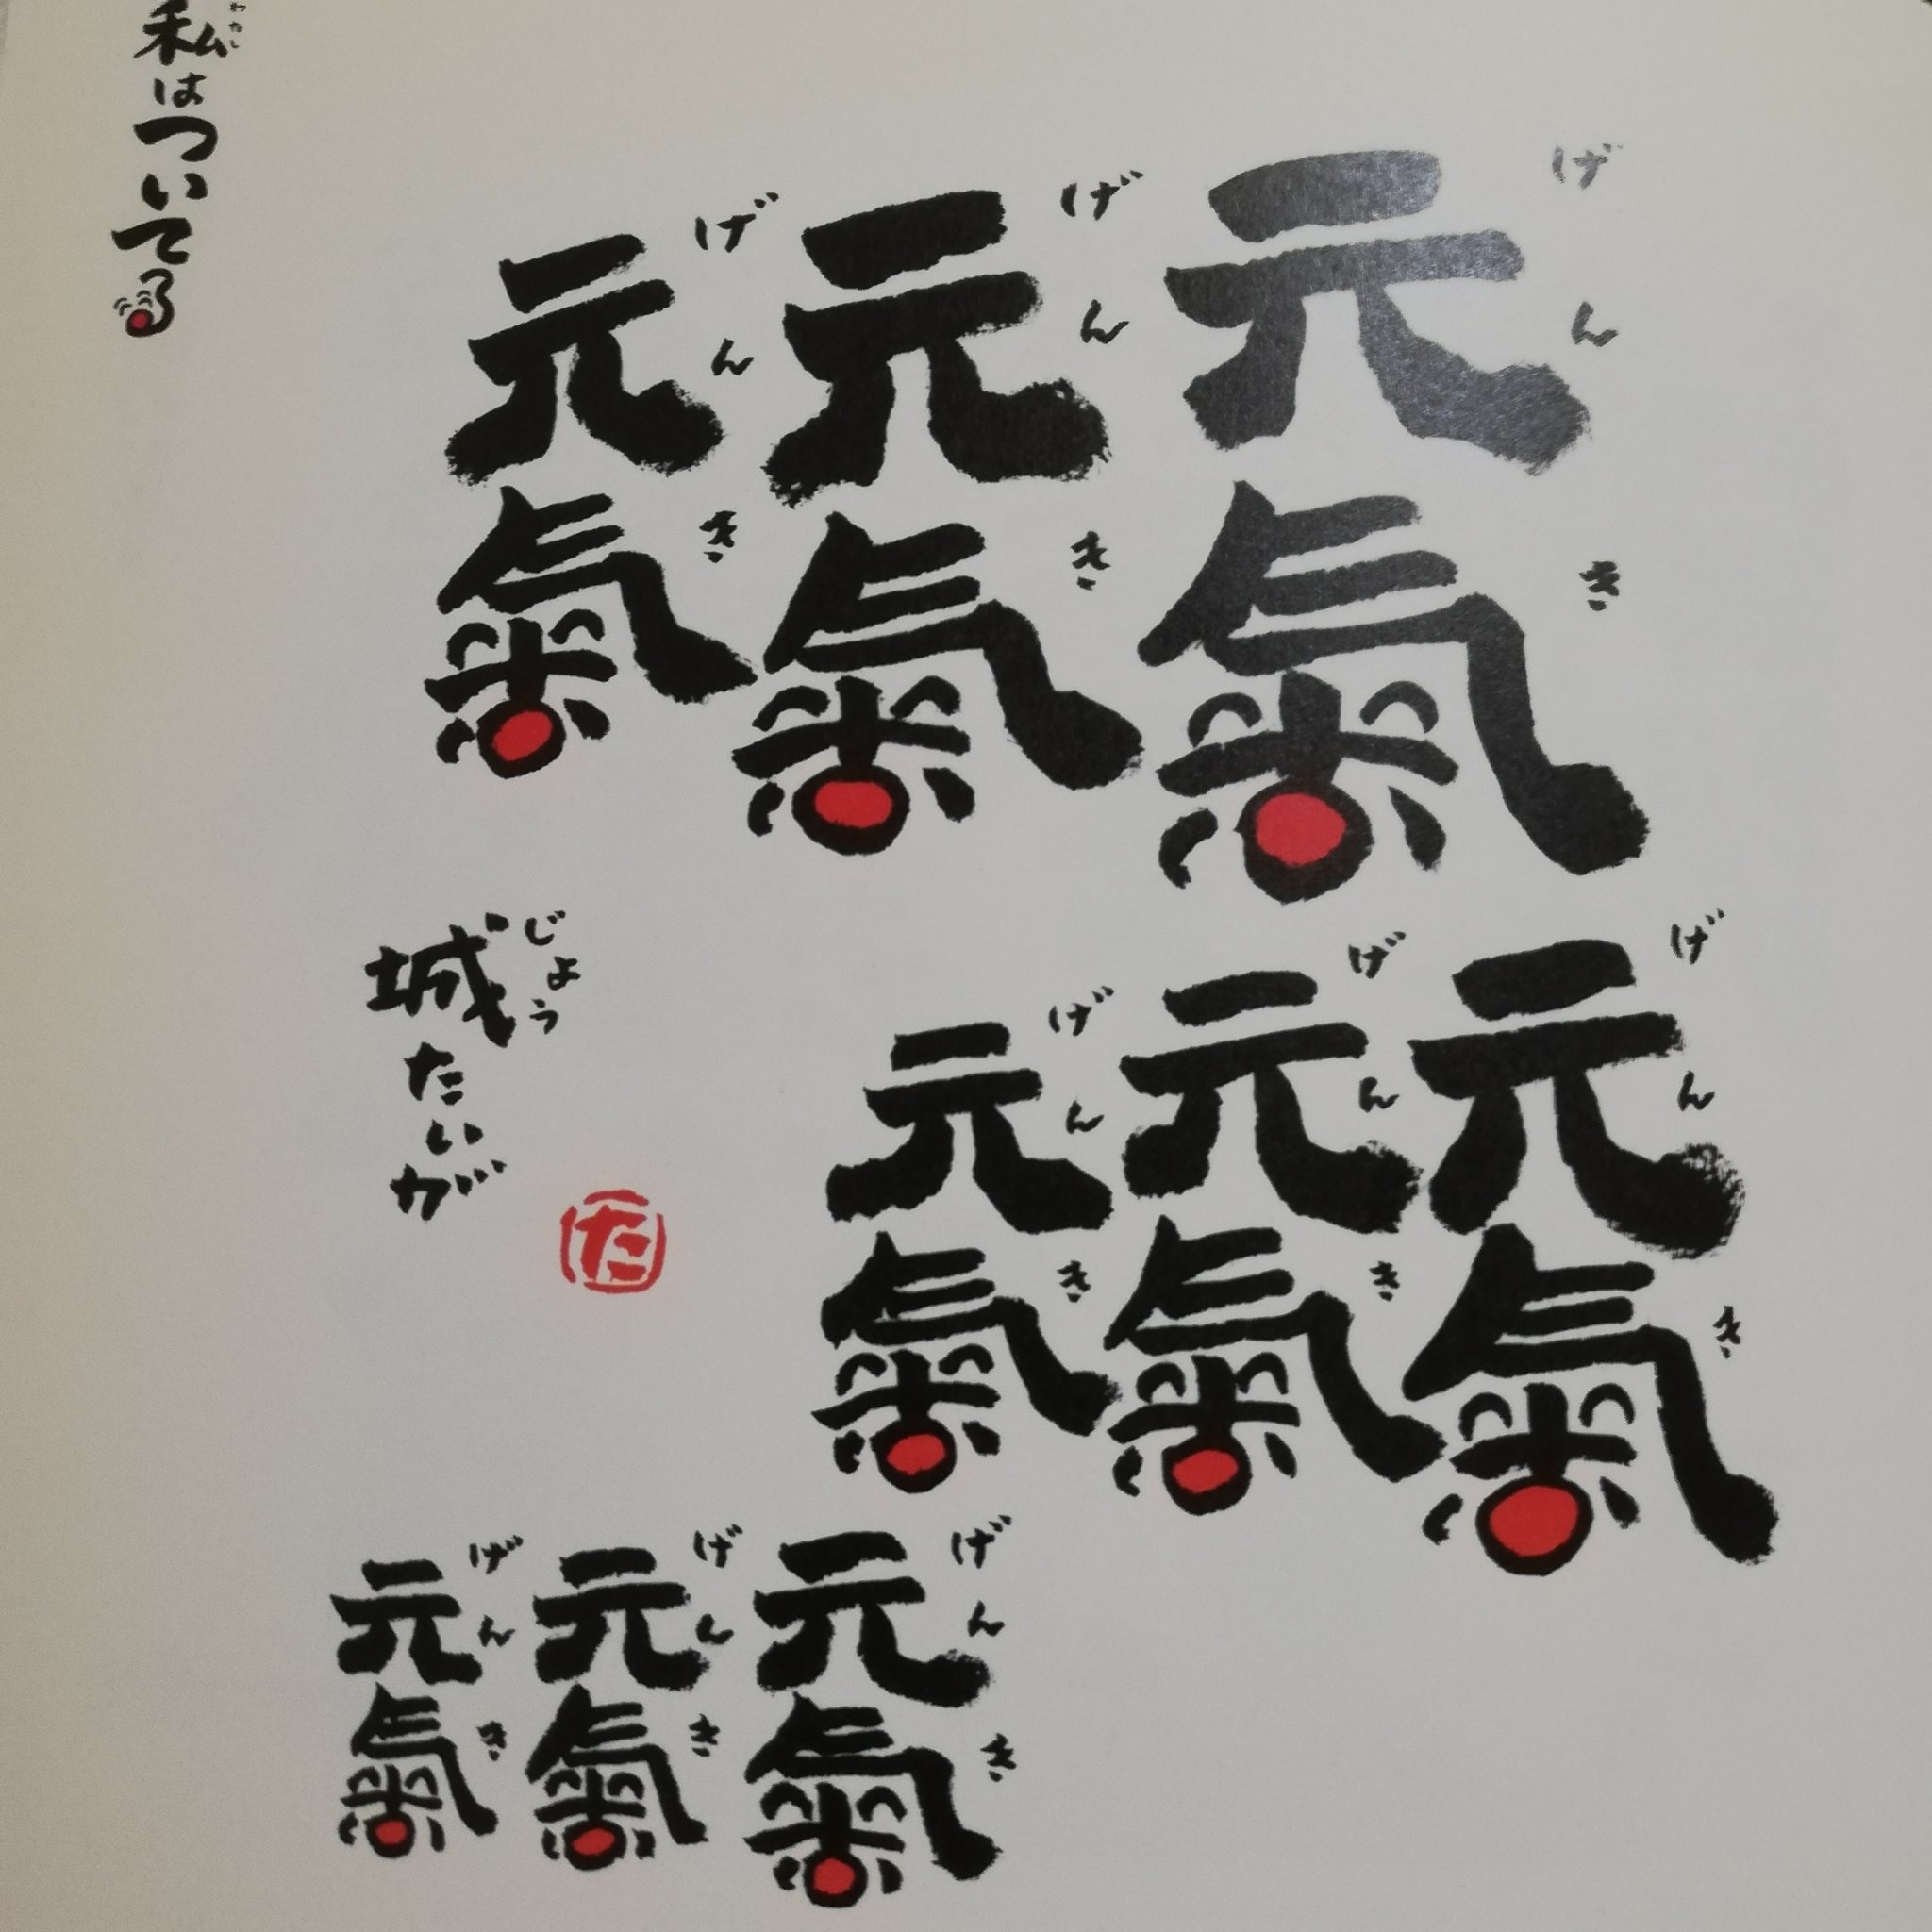 元氣
げんき
元氣
げんき
元氣
げんき
元氣
げんき
元氣
げんき
元氣
げんき
元氣
げんき
元氣
げんき
元氣
げんき
城たいが
じょう
た
私はついてる
わたし